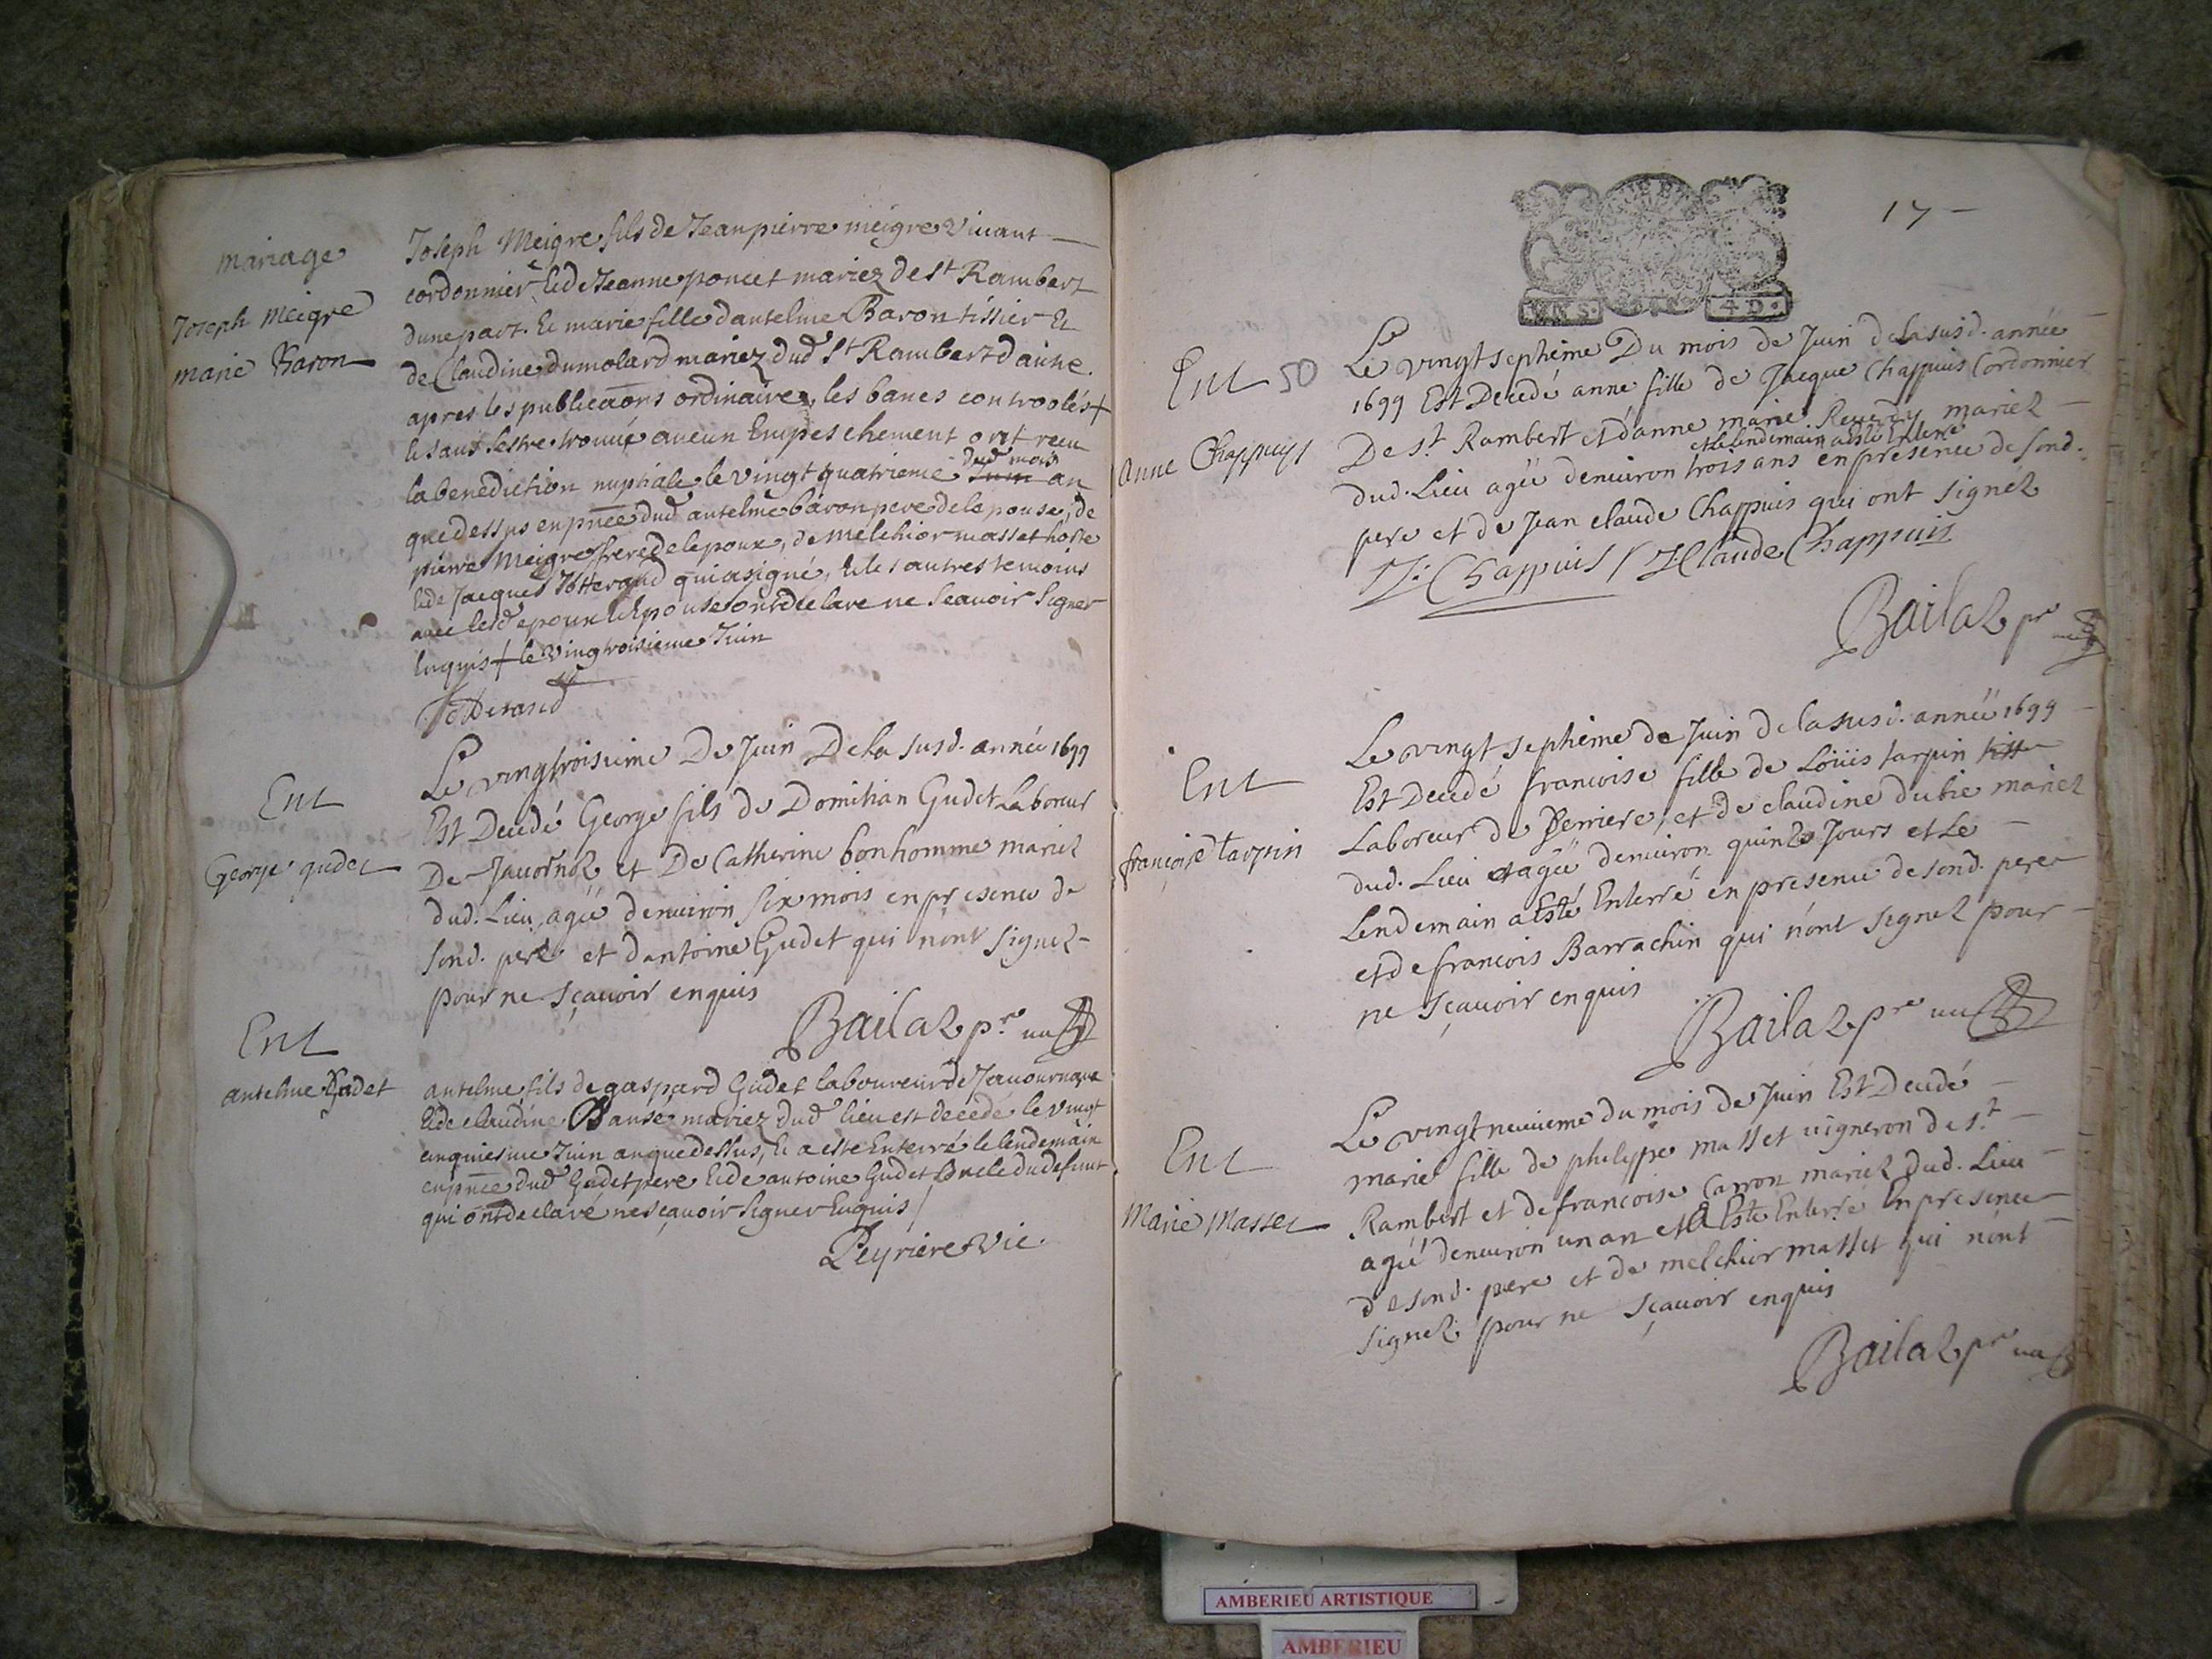 mariage
Joseph Meigre
marie Baron
Joseph Meigre fils de Jean pierre meigre Viuant
cordonnier Et de Jeanne poncet mariez de St Rambert
dune part. Et marie fille dantelme Baron tissier Et
de Claudine dumolard mariez dud St Rambert dautre.
apres les publicaons ordinaires, les bancs controolés +
le sans sestre trouué aucun Empeschement ont receu
la benediction nuptiale le vingt quatrieme dud mois an
que dessus en pnce dud antelme baron pere de lepouse, de
pierre Meigre frere de lepoux, de melchior masset hoste
Et de Jacques Tetterand qui a signé, Et les autres temoins
auec lesd epoux Et Epouse ont declare ne scauoir signer
Enquis + le vingtroisieme Juin
Ent
George gudet
Le vingtroisieme De Juin De la susd. année 1699
Est Decedé George fils de Domitian Gudet Laboreur
De Jauornoz et De Catherine bonhomme mariez
dud. Lieu, agé denuiron six mois en presence de
sond. pere et dantoine Gudet qui nont signez
pour ne sçauoir enquis
Bailaz pre
Ent
antelme Gudet
antelme fils de gaspard Gudet laboureur de
Et de claudine mariez dud lieu est decedé le vingt
cinquiesme Juin an que dessus, Et a este Enterré le lendemain
en pnce dud Gudet pere Et de antoine Gudet oncle du defunt
qui ont declaré ne sçauoir signer Enquis /
Peyriere vic.
17
4 D.
Ent 50
Anne Chappuys
Le vingt septhieme Du mois de Juin de la susd. année
1699 Est Decedé anne fille de Jacque Chappuis Cordonnier
De St Rambert et danne marie Reuerdy mariez
et le lendemain a esté Enterré
dud. Lieu agé denuiron trois ans en presence de sond.
pere et de Jean claude Chappuis qui ont signéz
J. Chappuis / J Claude Chappuis
Bailaz pr
Ent
françoise tarpin
Le vingt septhieme de Juin de la susd. année 1699
Est Decedé francoise fille de Loüis tarpin
Laboreur de Serriere, et de claudine dubie mariez
dud. Lieu et agé denuiron quinze Jours et Le
Lendemain a Esté Enterré en presence de sond. pere
et de francois Barrachin qui nont signez pour
ne sçauoir enquis
Bailaz pre
Ent
Marie Masset
Le vingt neuuieme du mois de Juin Est Decedé
marie fille de philyppe masset uigneron de St
Rambert et de francoise Carron mariez dud. Lieu
agé denuiron un an et a Este Enterré En presence
de sond. pere et de melchior masset qui nont
signez pour ne sçauoir enquis
Bailaz pr
AMBERIEU ARTISTIQUE
AMBERIEU